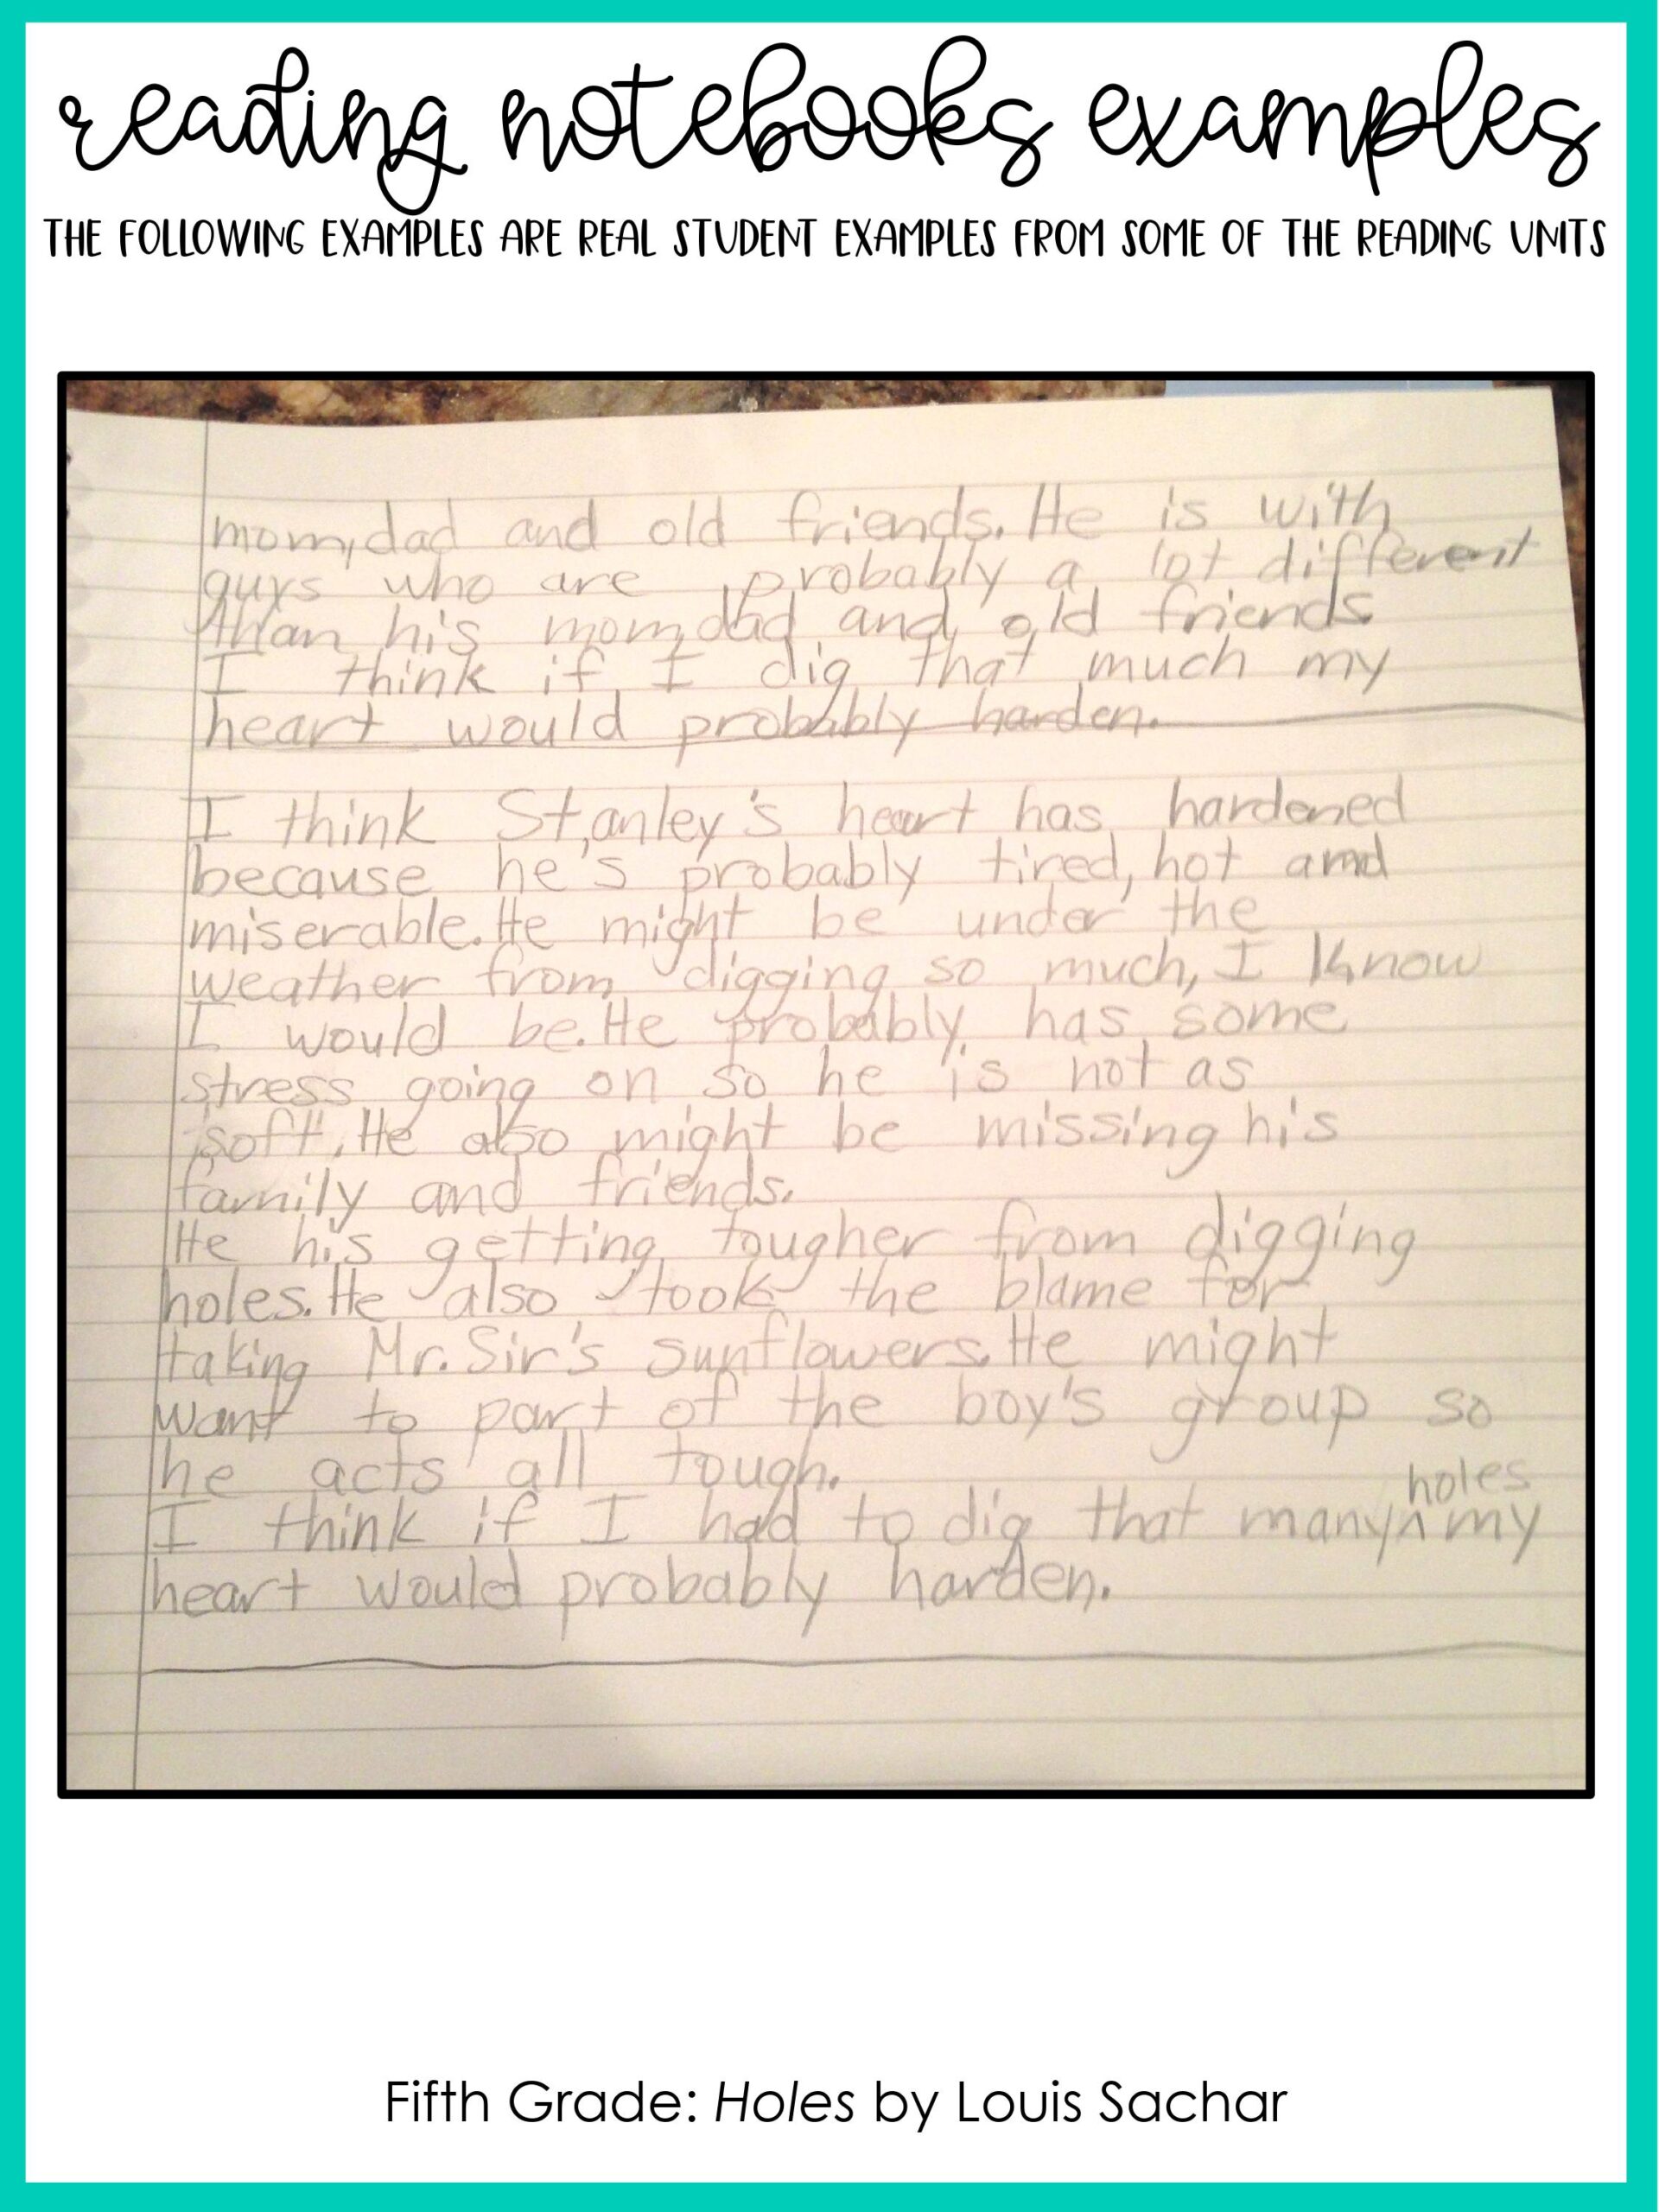 reading notebooks examples
THE FOLLOWING EXAMPLES ARE REAL STUDENT EXAMPLES FROM SOME OF THE READING UNITS
mom, dad and old friends. He is with
guys who are probably a lot different
than his mom, dad and old friends
I think if I dig that much my
heart would probably harden.
I think Stanley's heart has hardened
because he's probably tired, hot and
miserable. He might be under the
weather from digging so much, I know
I would be. He probably has some
stress going on so he is not as
soft. He also might be missing his
family and friends.
He his getting tougher from digging
holes. He also took the blame for
taking Mr. Sir's sunflowers. He might
want to part of the boy's group so
he acts all tough.
I think if I had to dig that many^holes my
heart would probably harden.
Fifth Grade: Holes by Louis Sachar